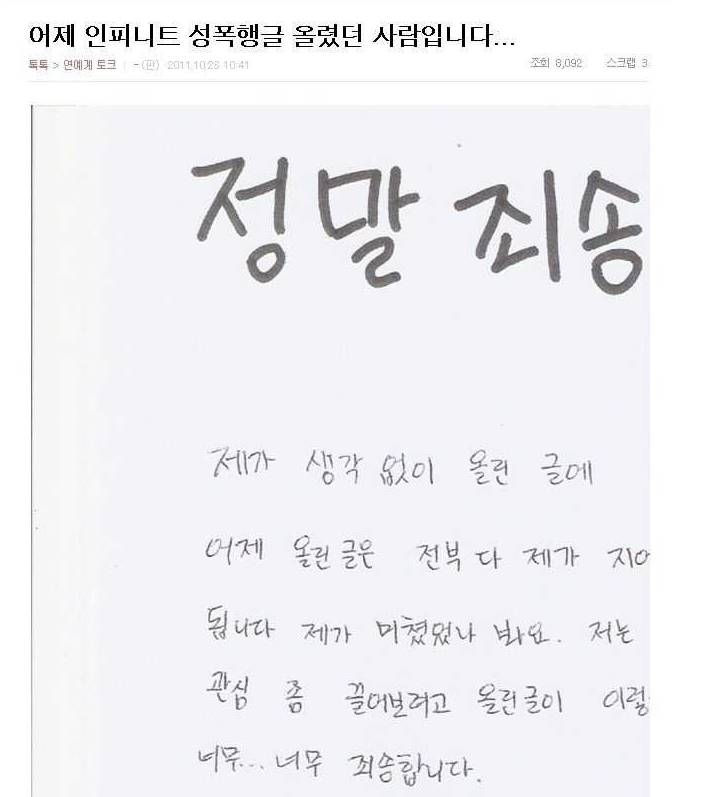 어제 인피니트 성폭행글 올렸던 사람입니다...
톡톡 > 연예계 토크 | -(판) 2011.10.28 10:41 조회 8,092 스크랩 3
정말 죄송
제가 생각 없이 올린 글에
어제 올린글은 전부 다 제가 지어
됩니다 제가 미쳤었나 봐요. 저는
관심 좀 끌어보려고 올린글이 이렇
너무... 너무 죄송합니다.